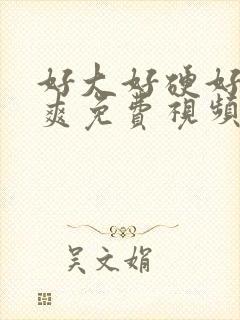 好大好硬好
爽免费視頻
吴文娟